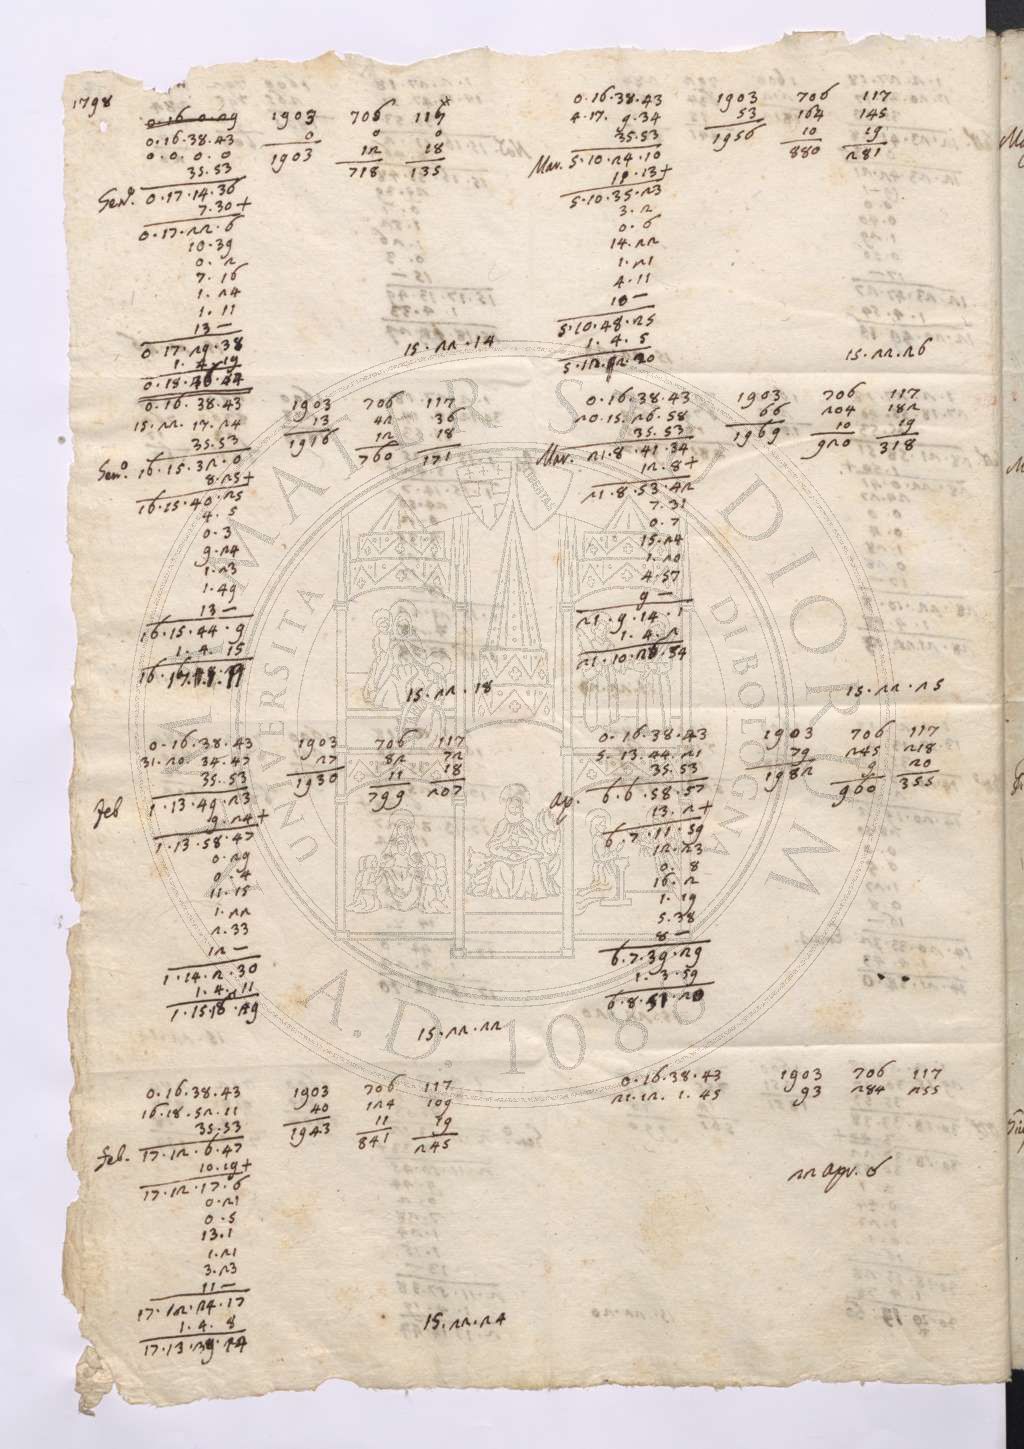 1798
0.16.0.29 1903 706 117
0.16.38.43 0 0 0
0.0.0.0 1903 12 18
35.53 718 135
Gen.º 0.17.14.36
7.30+
0.17.22.6
10.39
0.2
7.16
1.24
1.11
13—
0.17.29.38
15.22.14
1.4.19
0.16.38.43 1903 706 117
15.22.17.24 13 42 36
35.53 1916 12 18
Gen.º 16.15.32.0 760 171
8.25+
16.15.40.25
4.5
0.3
9.24
1.23
1.49
13—
16.15.44.9
1.4.15
15.22.18
0.16.38.43 1903 706 117
31.20.34.47 27 82 72
35.53 1930 11 18
Feb 1.13.49.23 799 207
9.24+
1.13.58.47
0.29
0.4
11.15
1.22
2.33
12—
1.14.2.30
1.4.11
1.15.
15.22.22
0.16.38.43 1903 706 117
16.18.52.11 40 124 109
35.53 1943 11 19
Feb. 17.12.6.47 841 245
10.19+
17.12.17.6
0.21
0.5
13.1
1.21
3.23
11—
17.12.24.17
1.4.8
17.13.
15.22.24
0.16.38.43 1903 706 117
4.17.9.34 53 164 145
35.53 1956 10 19
Mar. 5.10.24.10 880 281
11.13+
5.10.35.23
3.2
0.6
14.22
1.21
4.11
10—
5.10.48.25
1.4.5
15.22.26
0.16.38.43 1903 706 117
20.15.26.58 66 204 182
35.53 1969 10 19
Mar. 21.8.41.34 920 318
12.8+
21.8.53.42
7.31
0.7
15.24
1.20
4.57
9—
21.9.14.1
1.4.2
21.10.
15.22.25
0.16.38.43 1903 706 117
5.13.44.21 79 245 218
35.53 1982 9 20
Ap. 6.6.58.57 960 355
13.2+
6.7.11.59
12.23
0.8
16.2
1.19
5.38
8—
6.7.39.29
1.3.59
6.8.51.20
0.16.38.43 1903 706 117
21.12.1.45 93 284 255
22 Apr. 6